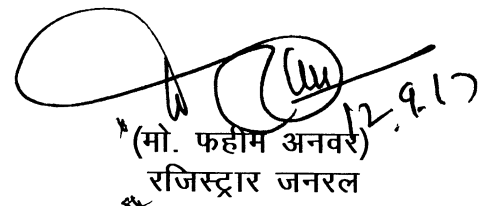 12.9.17
(मो. फहीम अनवर)
रजिस्ट्रार जनरल